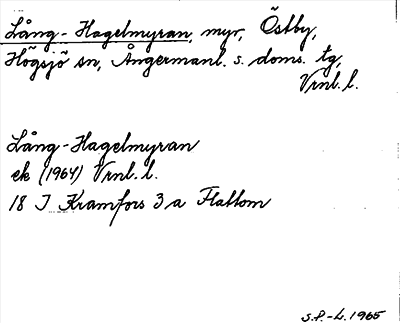 Lång-Hagelmyran, myr, Östby,
Högsjö sn, Ångermanl. s. doms. tg,
Vrnl. l.
Lång-Hagelmyran
ek (1964) Vrnl. l.
18 I Kramfors 3 a Flattom
S.P.-L. 1965